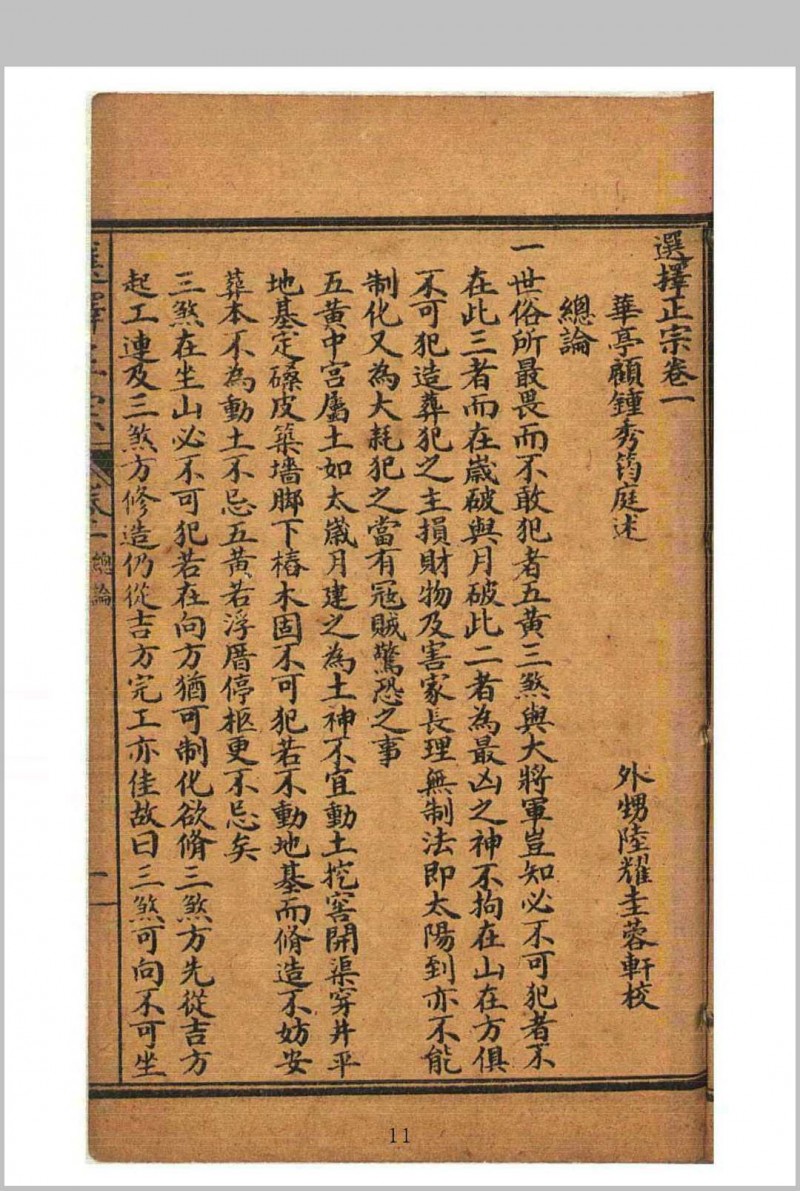 選擇正宗卷一
華亭顧鍾秀筠庭述　外甥陸耀圭蓉軒校
總論
一世俗所最畏而不敢犯者五黃三煞與大將軍豈知必不可犯者不
在此三者而在嵗破與月破此二者為最凶之神不拘在山在方俱
不可犯造葬犯之主損財物及害家長理無制法即太陽到亦不能
制化又為大耗犯之當有冦賊驚恐之事
五黃中宮屬土如太嵗月建之為土神不宜動土挖窖開渠穿井平
地基定磉皮築墻脚下樁木固不可犯若不動地基而脩造不妨安
葬本不為動土不忌五黃若浮厝停柩更不忌矣
三煞在坐山必不可犯若在向方猶可制化欲脩三煞方先從吉方
起工連及三煞方修造仍從吉方完工亦佳故曰三煞可向不可坐
選擇正宗　卷一總論　一
11